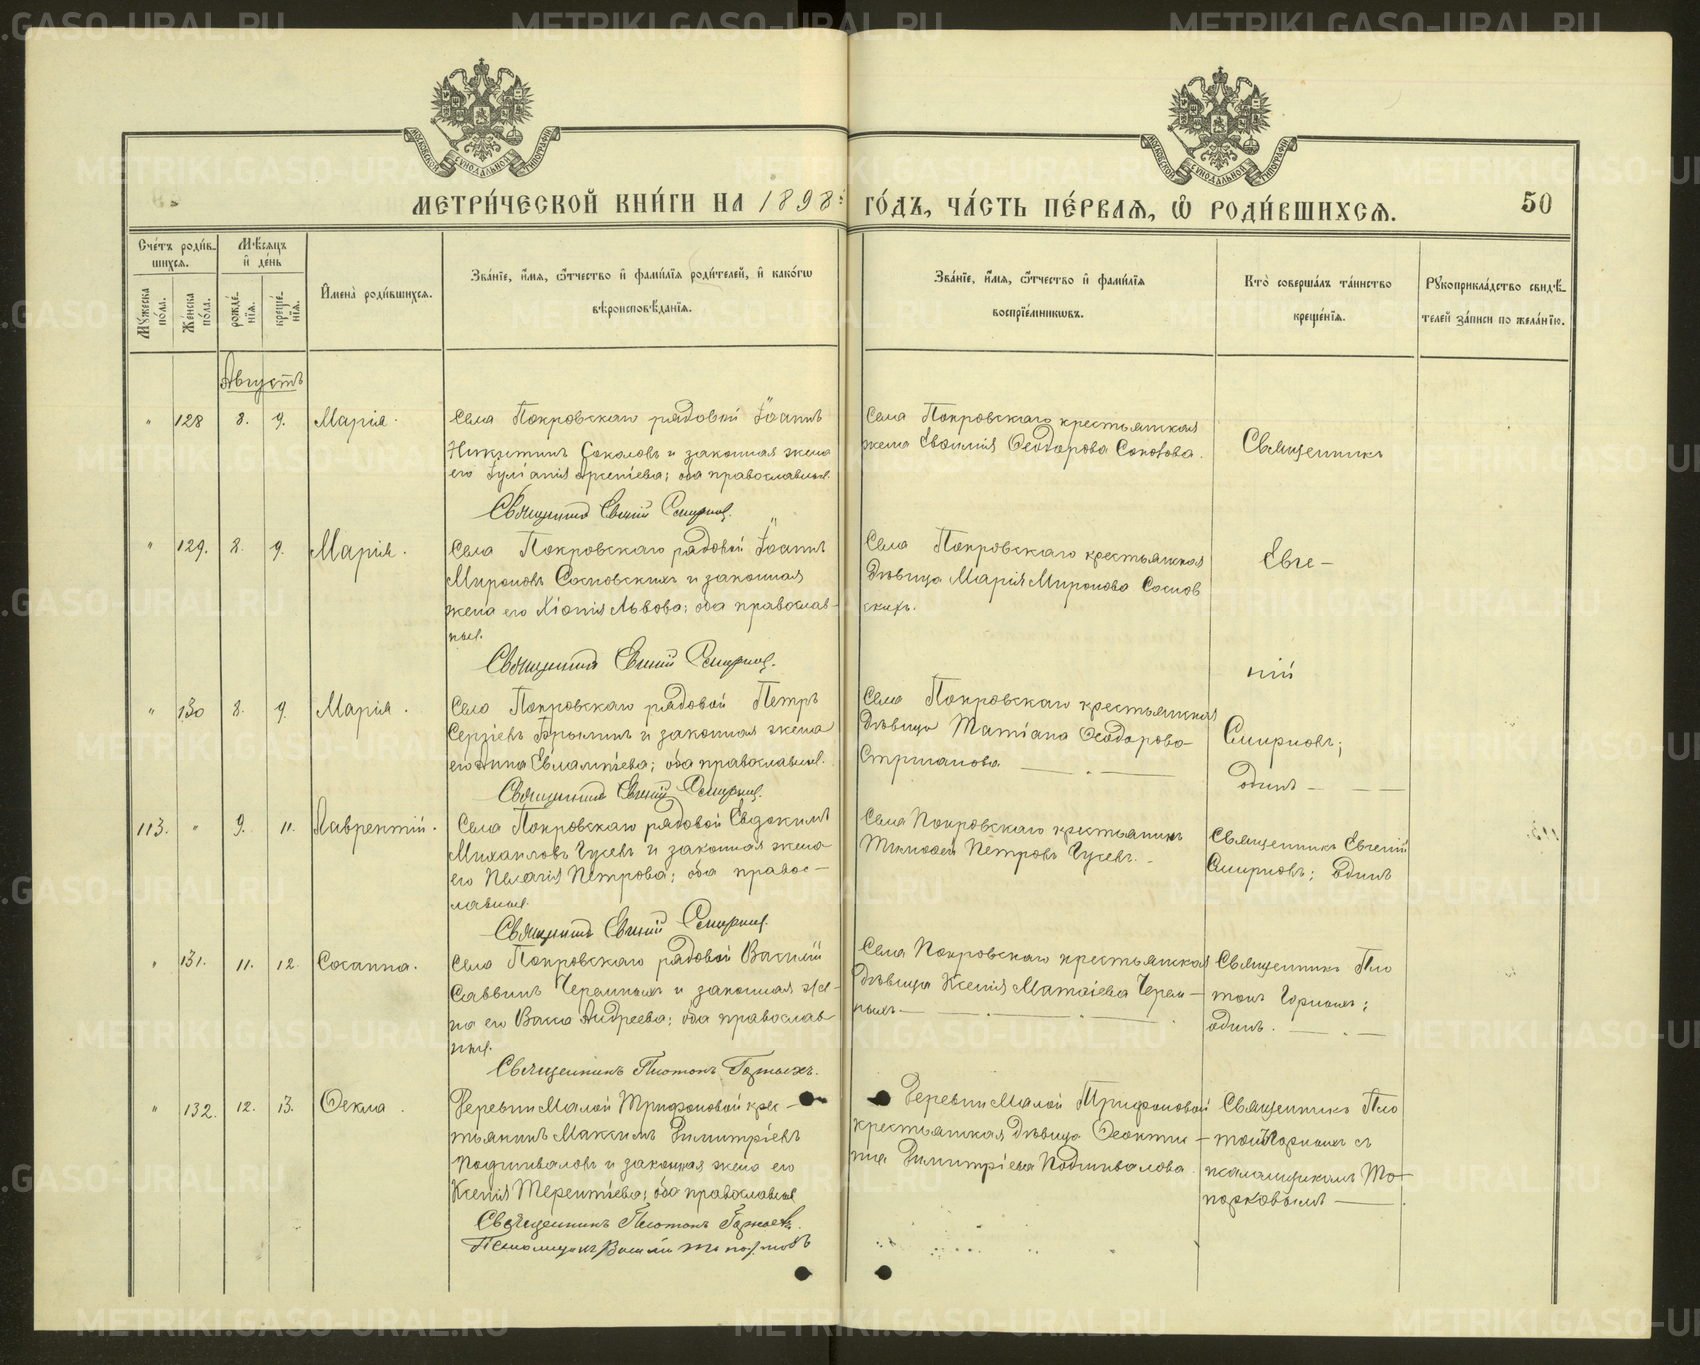 МОСКОВСКОЙ СѴНОДАЛЬНОЙ ТИПОГРАФІИ
МОСКОВСКОЙ СѴНОДАЛЬНОЙ ТИПОГРАФІИ
МЕТРИ́ЧЕСКОЙ КНИ́ГИ НА 1898
ГО́ДЪ, ЧА́СТЬ ПЕ́РВАѦ, Ѡ РОДИ́ВШИХСѦ.
50
Сче́тъ роди́в-
шихсѧ.
Мꙋ́жеска по́ла.
Же́нска по́ла.
Мѣ́сѧцъ
и҆ де́нь
рожде́нїѧ.
креще́нїѧ.
И҆мена̀ роди́вшихсѧ.
Зва́нїе, и҆́мѧ, ѻ҆́тчество и҆ фами́лїѧ роди́телей, и҆ како́гѡ
вѣроисповѣ́данїѧ.
Зва́нїе, и҆́мѧ, ѻ҆́тчество и҆ фами́лїѧ
воспрїе́мникѡвъ.
Кто̀ соверша́лъ та́инство
креще́нїѧ.
Рꙋкоприкла́дство свидѣ́-
телей за́писи по жела́нїю.
Августъ
" 128 8. 9. Марія.
Села Покровскаго рядовой Іоаннъ
Никитинъ Соколовъ и законная жена
его Іуліанія Арсеніева; оба православные.
Священникъ Евгеній Смирновъ.
Села Покровскаго крестьянская
жена Евѳимія Ѳеодорова Соколова.
Священникъ
" 129. 8. 9. Марія.
Села Покровскаго рядовой Іоаннъ
Мироновъ Сосновскихъ и законная
жена его Хіонія Львова; оба православ-
ные.
Священникъ Евгеній Смирновъ.
Села Покровскаго крестьянская
дѣвица Марія Миронова Соснов
скихъ.
Евге-
" 130 8. 9. Марія.
Села Покровскаго рядовой Петръ
Сергіевъ Брылинъ и законная жена
его Анна Евлампіева; оба православные.
Священникъ Евгеній Смирновъ.
Села Покровскаго крестьянская
дѣвица Татіана Ѳеодорова
Стриганова
ній
Смирновъ;
одинъ
113. " 9. 11. Лаврентій.
Села Покровскаго рядовой Евдокимъ
Михаиловъ Гусевъ и законная жена
его Пелагія Петрова; оба правос-
лавные.
Священникъ Евгеній Смирновъ.
Села Покровскаго крестьянинъ
Тимоѳей Петровъ Гусевъ.
Священникъ Евгеній
Смирновъ; одинъ
" 131. 11. 12. Сосанна.
Села Покровскаго рядовой Василій
Саввинъ Черемныхъ и законная же-
на его Васса Андреева; оба православ
ные.
Священникъ Платонъ Горныхъ.
Села Покровскаго крестьянская
дѣвица Ксенія Матѳіева Черем-
ныхъ.
Священникъ Пла
тонъ Горныхъ;
одинъ.
" 132. 12. 13. Ѳекла.
Деревни Малой Трифоновой крес-
тьянинъ Максимъ Димитріевъ
Подшиваловъ и законная жена его
Ксенія Терентіева; оба православные
Священникъ Платонъ Горныхъ.
Псаломщикъ Василій Топорковъ
Деревни Малой Трифоновой
крестьянская дѣвица Ѳеокти-
ста Димитріева Подшивалова.
Священникъ Пла
тонъ Горныхъ съ
псаломщикомъ То-
порковымъ